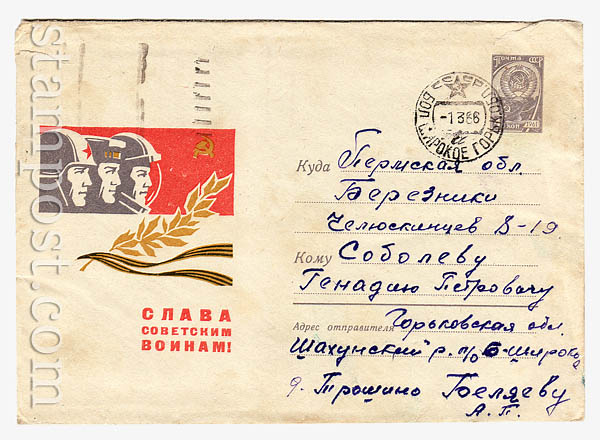 stampost.com
ПОЧТА СССР
1961
КОП
-1 3 66
БОЛ. ШИРОКОЕ ГОРЬК
Куда Пермская обл.
Березники
Челюскинцев 8-19
Кому Соболеву
Генадию Петровичу
Адрес отправителя Горьковская обл.
Шахунский р. п/о Б-Широкое
д. Трошино Беляеву
А. П.
СЛАВА
СОВЕТСКИМ
ВОИНАМ!